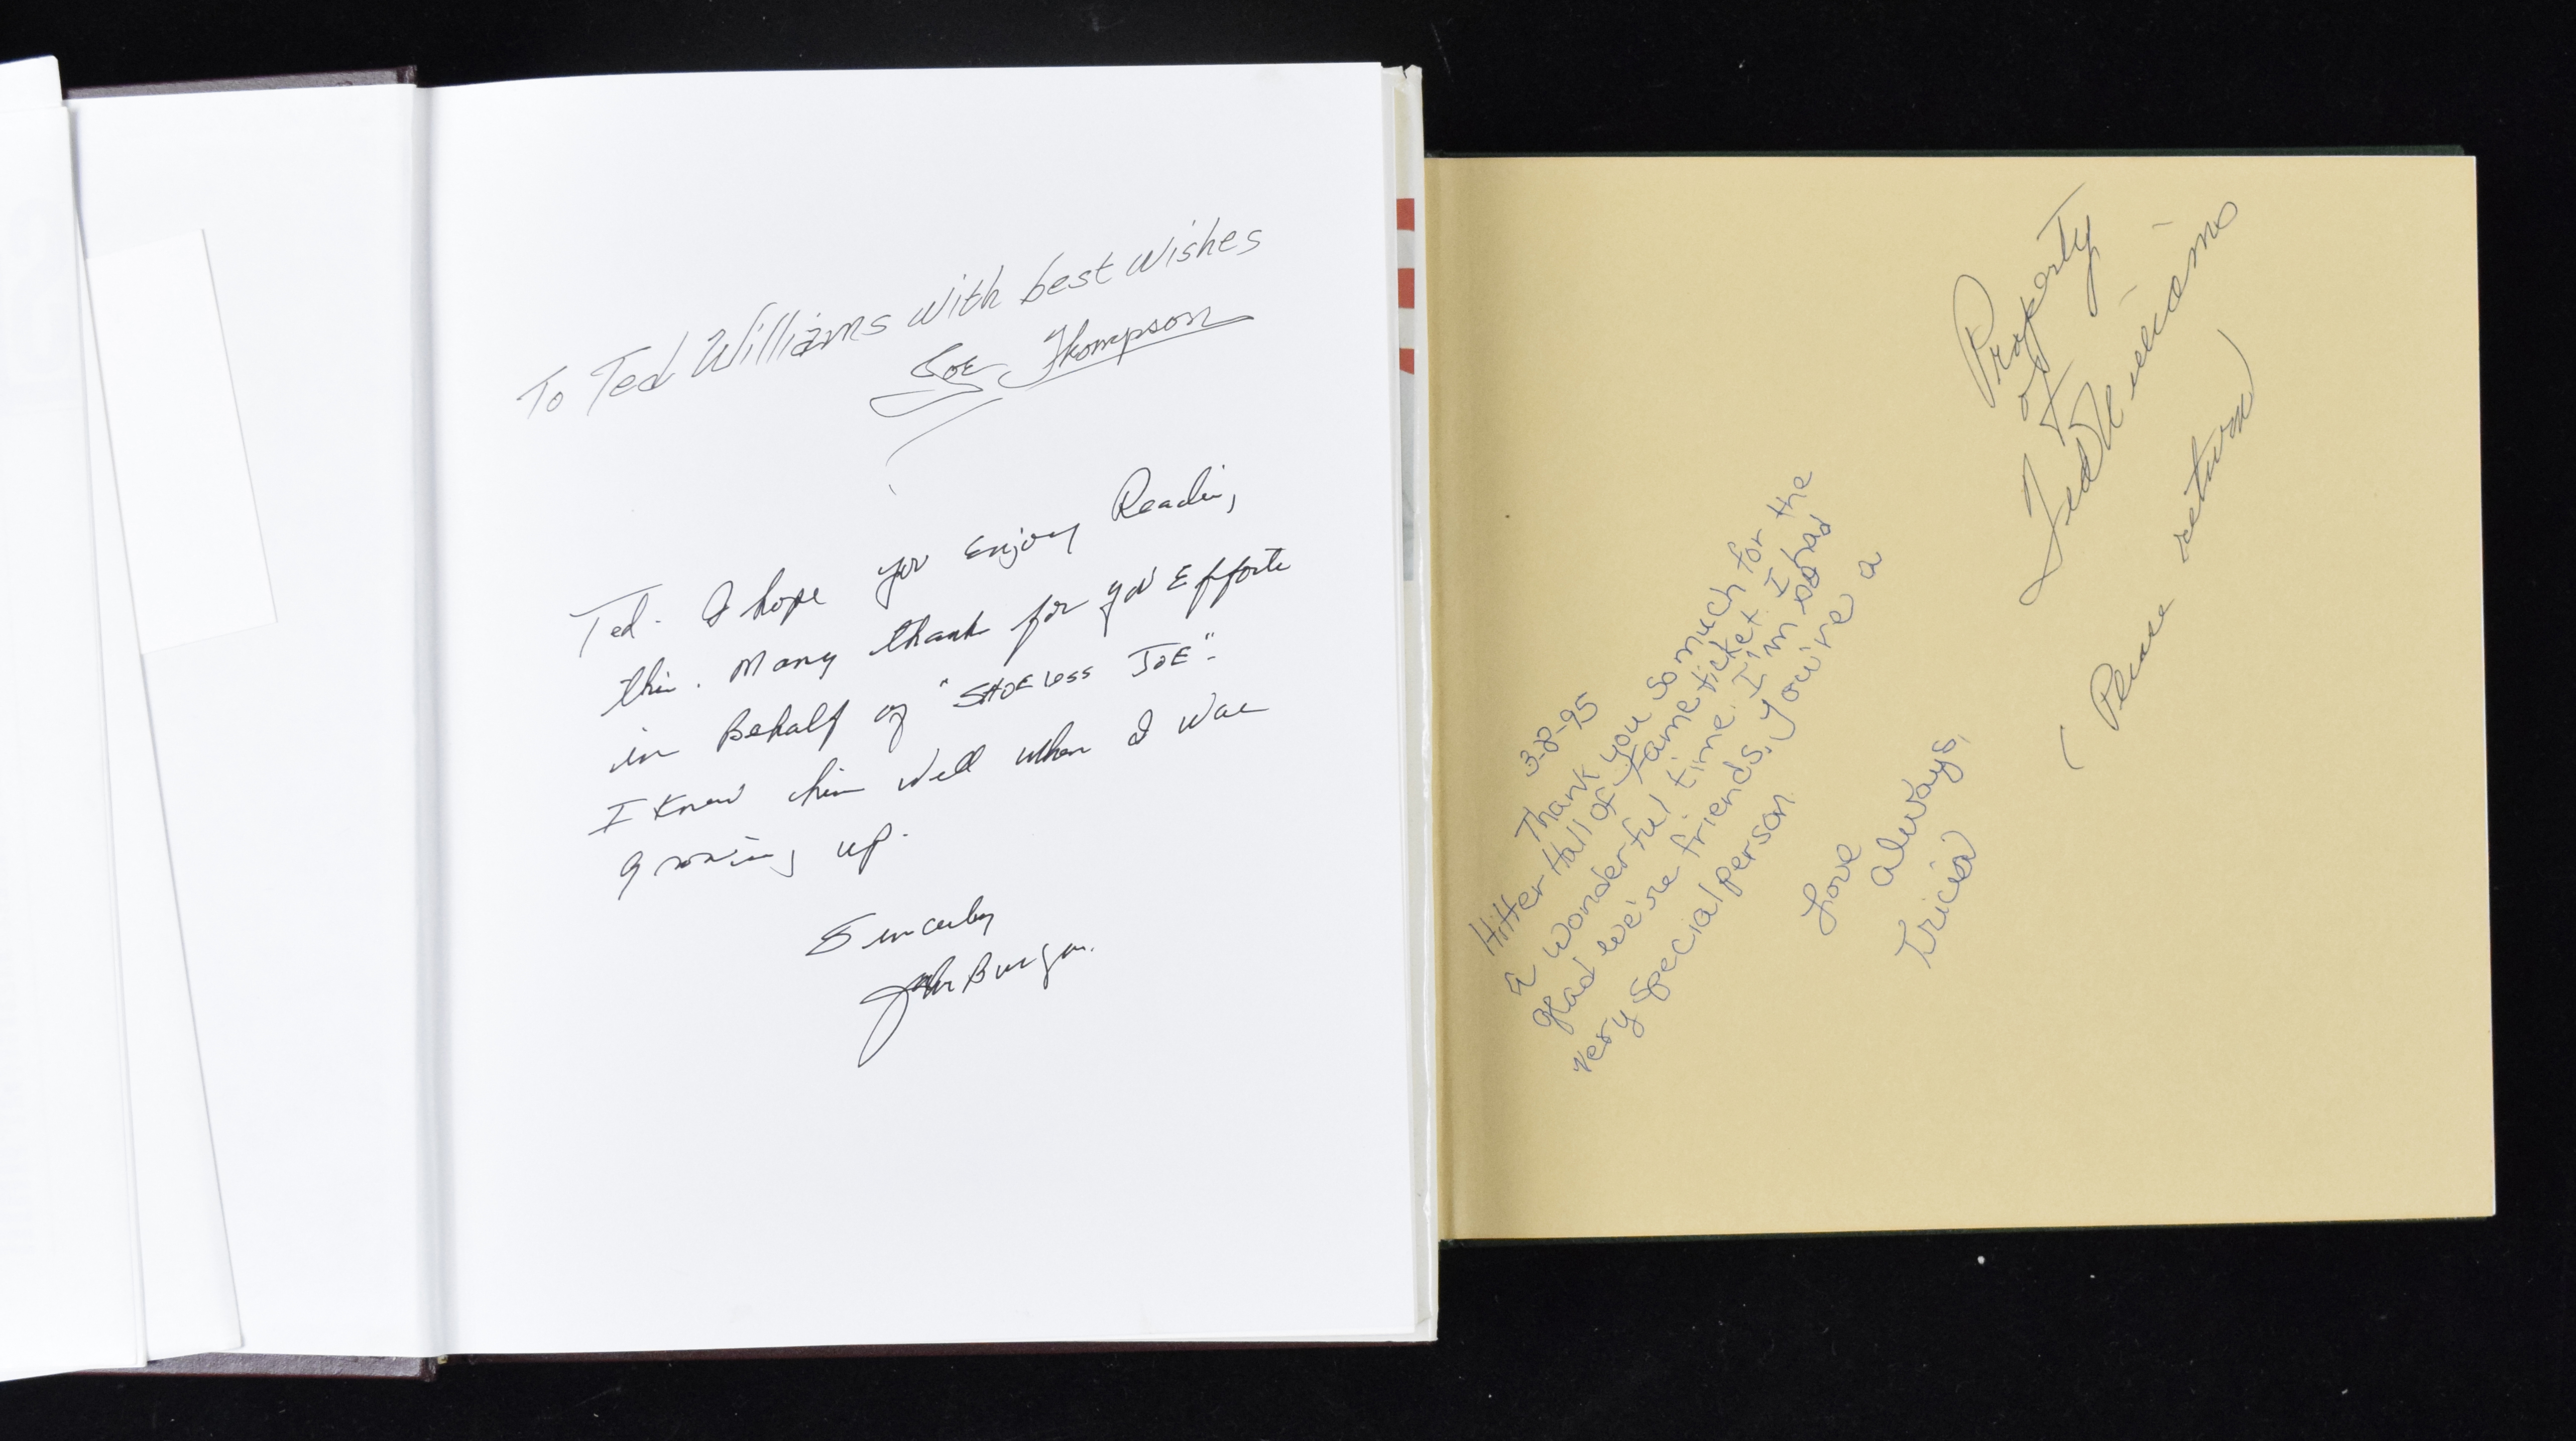 To Ted Williams with best wishes
Joe Thompson
Ted. I hope you Enjoy Reading
this. Many thanks for yo' Efforts
in Behalf of "SHOELESS JOE".
I Knew him well when I was
growing up.
Sincerely
John
3-8-95
Thank you so much for the
Hitter Hall of Fame ticket. I had
a wonderful time. I'm so
glad we're friends. You're a
very special person.
Love
always,
Tricia
Property
of
Ted Williams
(Please return)